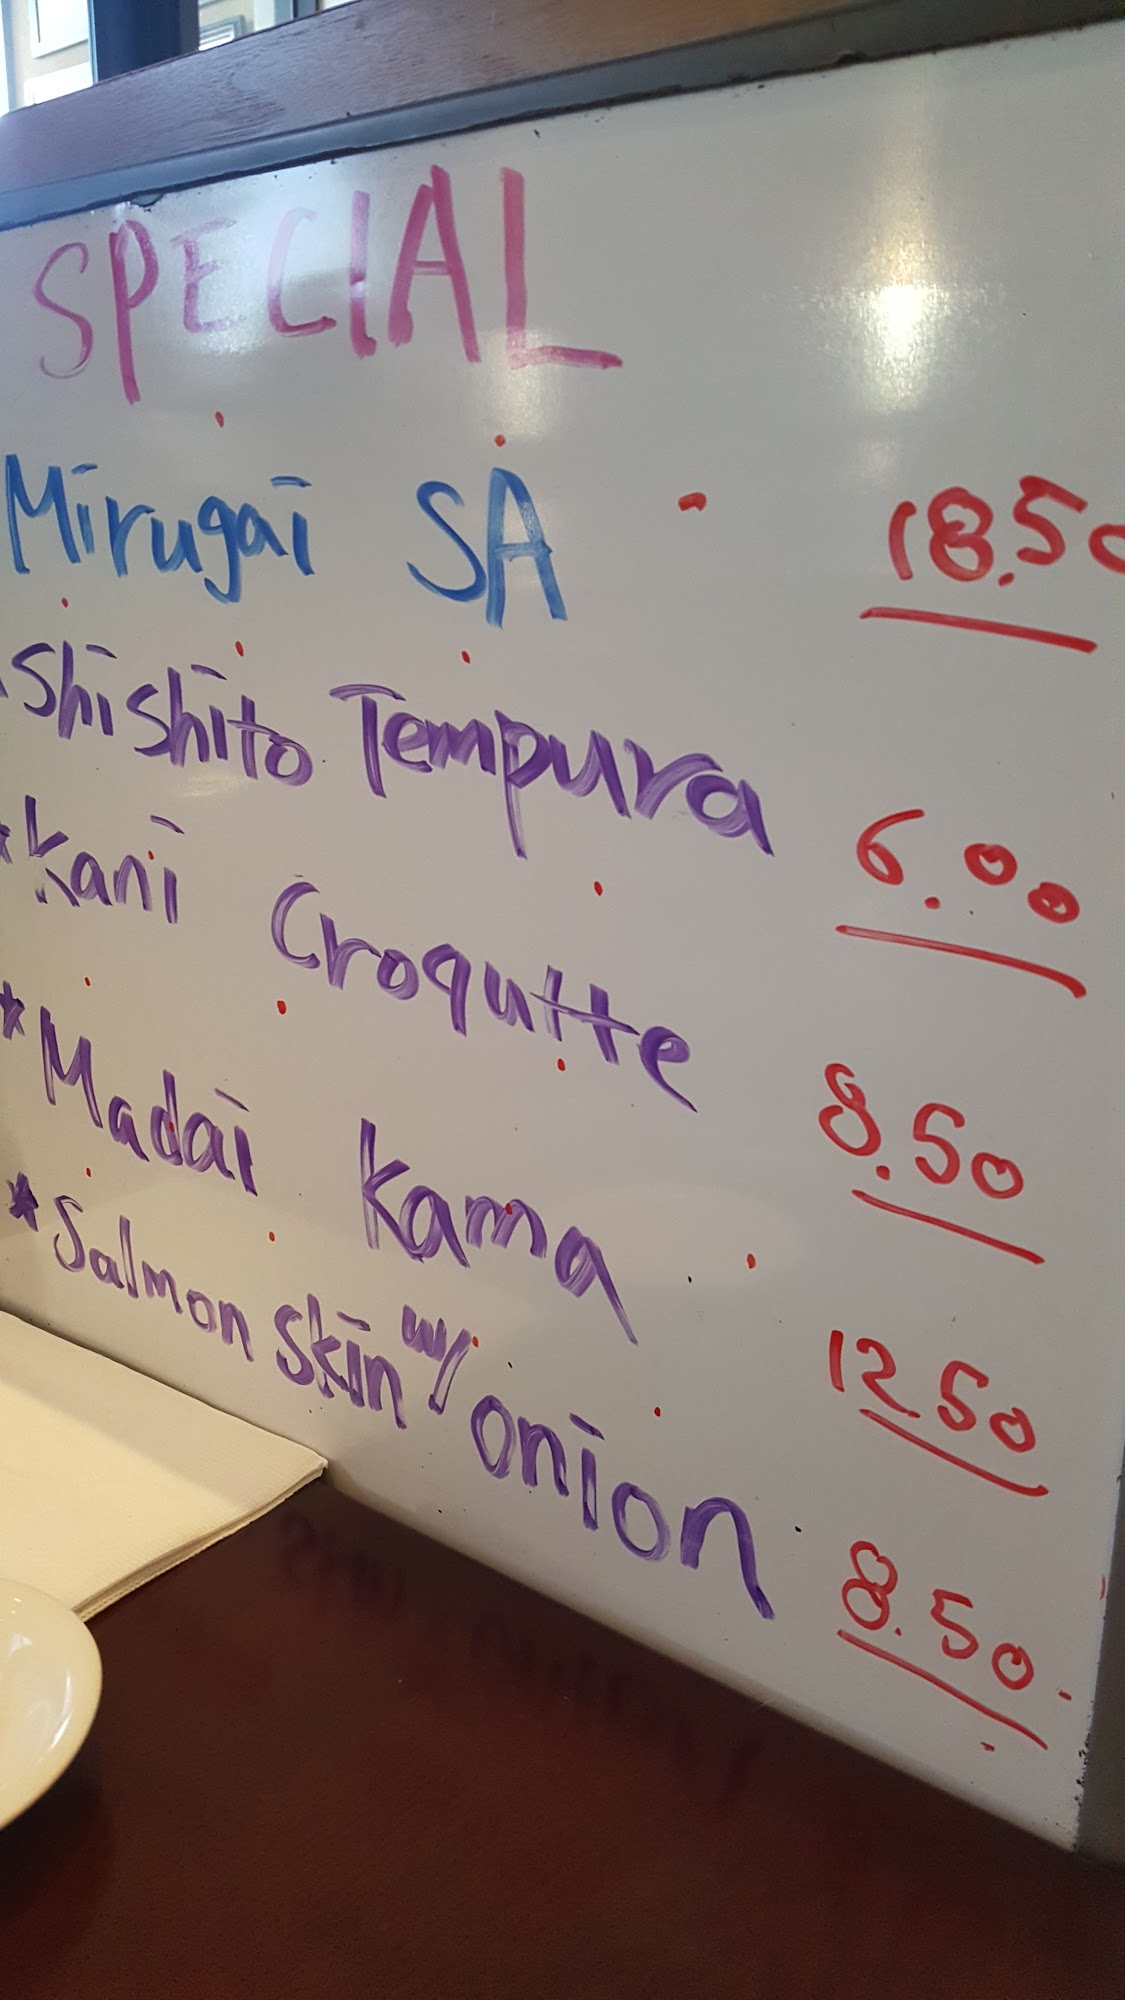 SPECIAL
Mirugai SA - 18.50
Shishito Tempura 6.00
*Kani Croqutte 8.50
*Madai Kama 12.50
*Salmon skin w/ onion 8.50